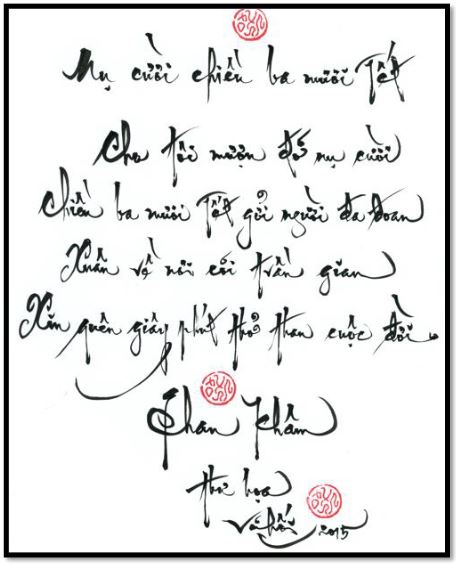 Nụ cười chiều ba mươi Tết
Cho tôi mượn đỡ nụ cười
Chiều ba mươi Tết gởi người đa đoan
Xuân về nơi cõi trần gian
Xin quên giây phút thở than cuộc đời.
Phan Khâm
thơ họa
Vũ Hối 2015